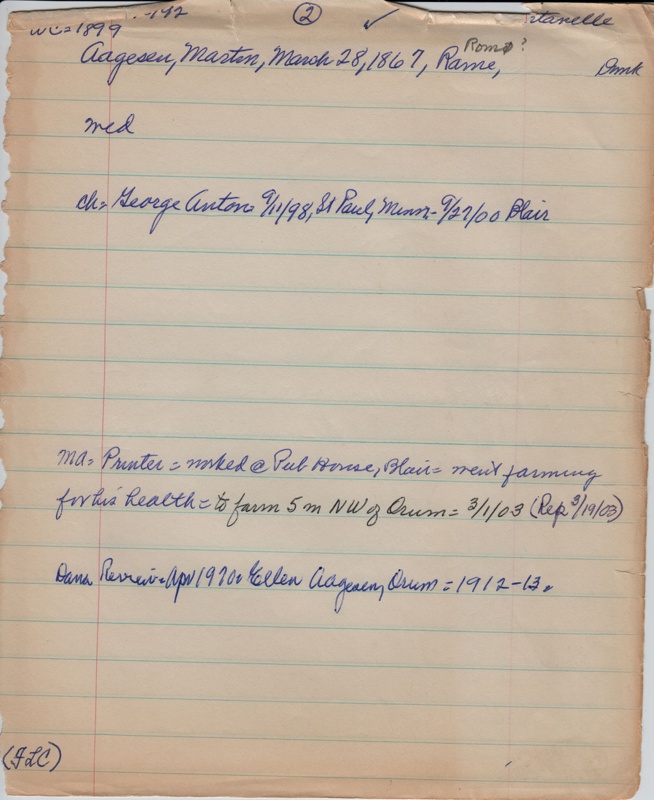 WC=1899 -142 ② ✓ tanelle
Aagesen, Martin, March 28, 1867, Rame, Romø? Dmk
med
ch= George Anton= 9/11/98, St Paul, Minn- 9/27/00 Blair
Ma= Printer = worked @ Pub House, Blair= went farming
for his health = to farm 5 m NW of Orum = 3/1/03 (Rep 3/19/03)
Dana Review= Apr 1970= Ellen Aagesen, Orum = 1912-13.
(FLC)